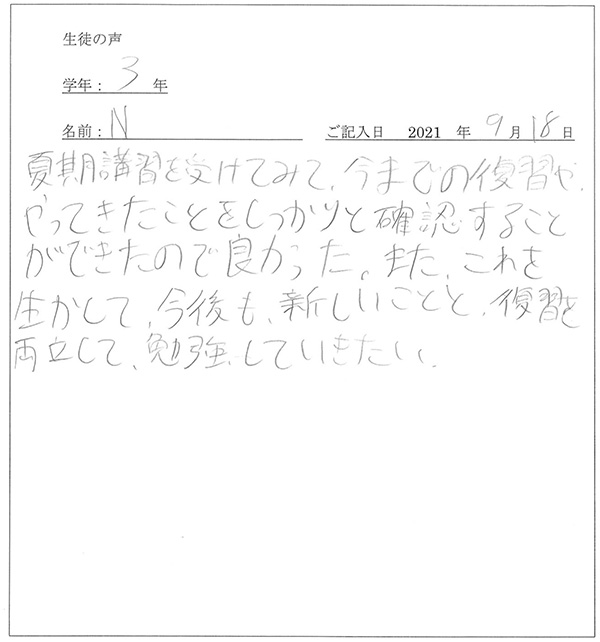 生徒の声
学年： 3 年
名前： N ご記入日 2021 年 9 月 18 日
夏期講習を受けてみて、今までの復習や、
やってきたことをしっかりと確認すること
ができたので良かった。また、これを
生かして、今後も、新しいことと、復習を
両立して、勉強していきたい。